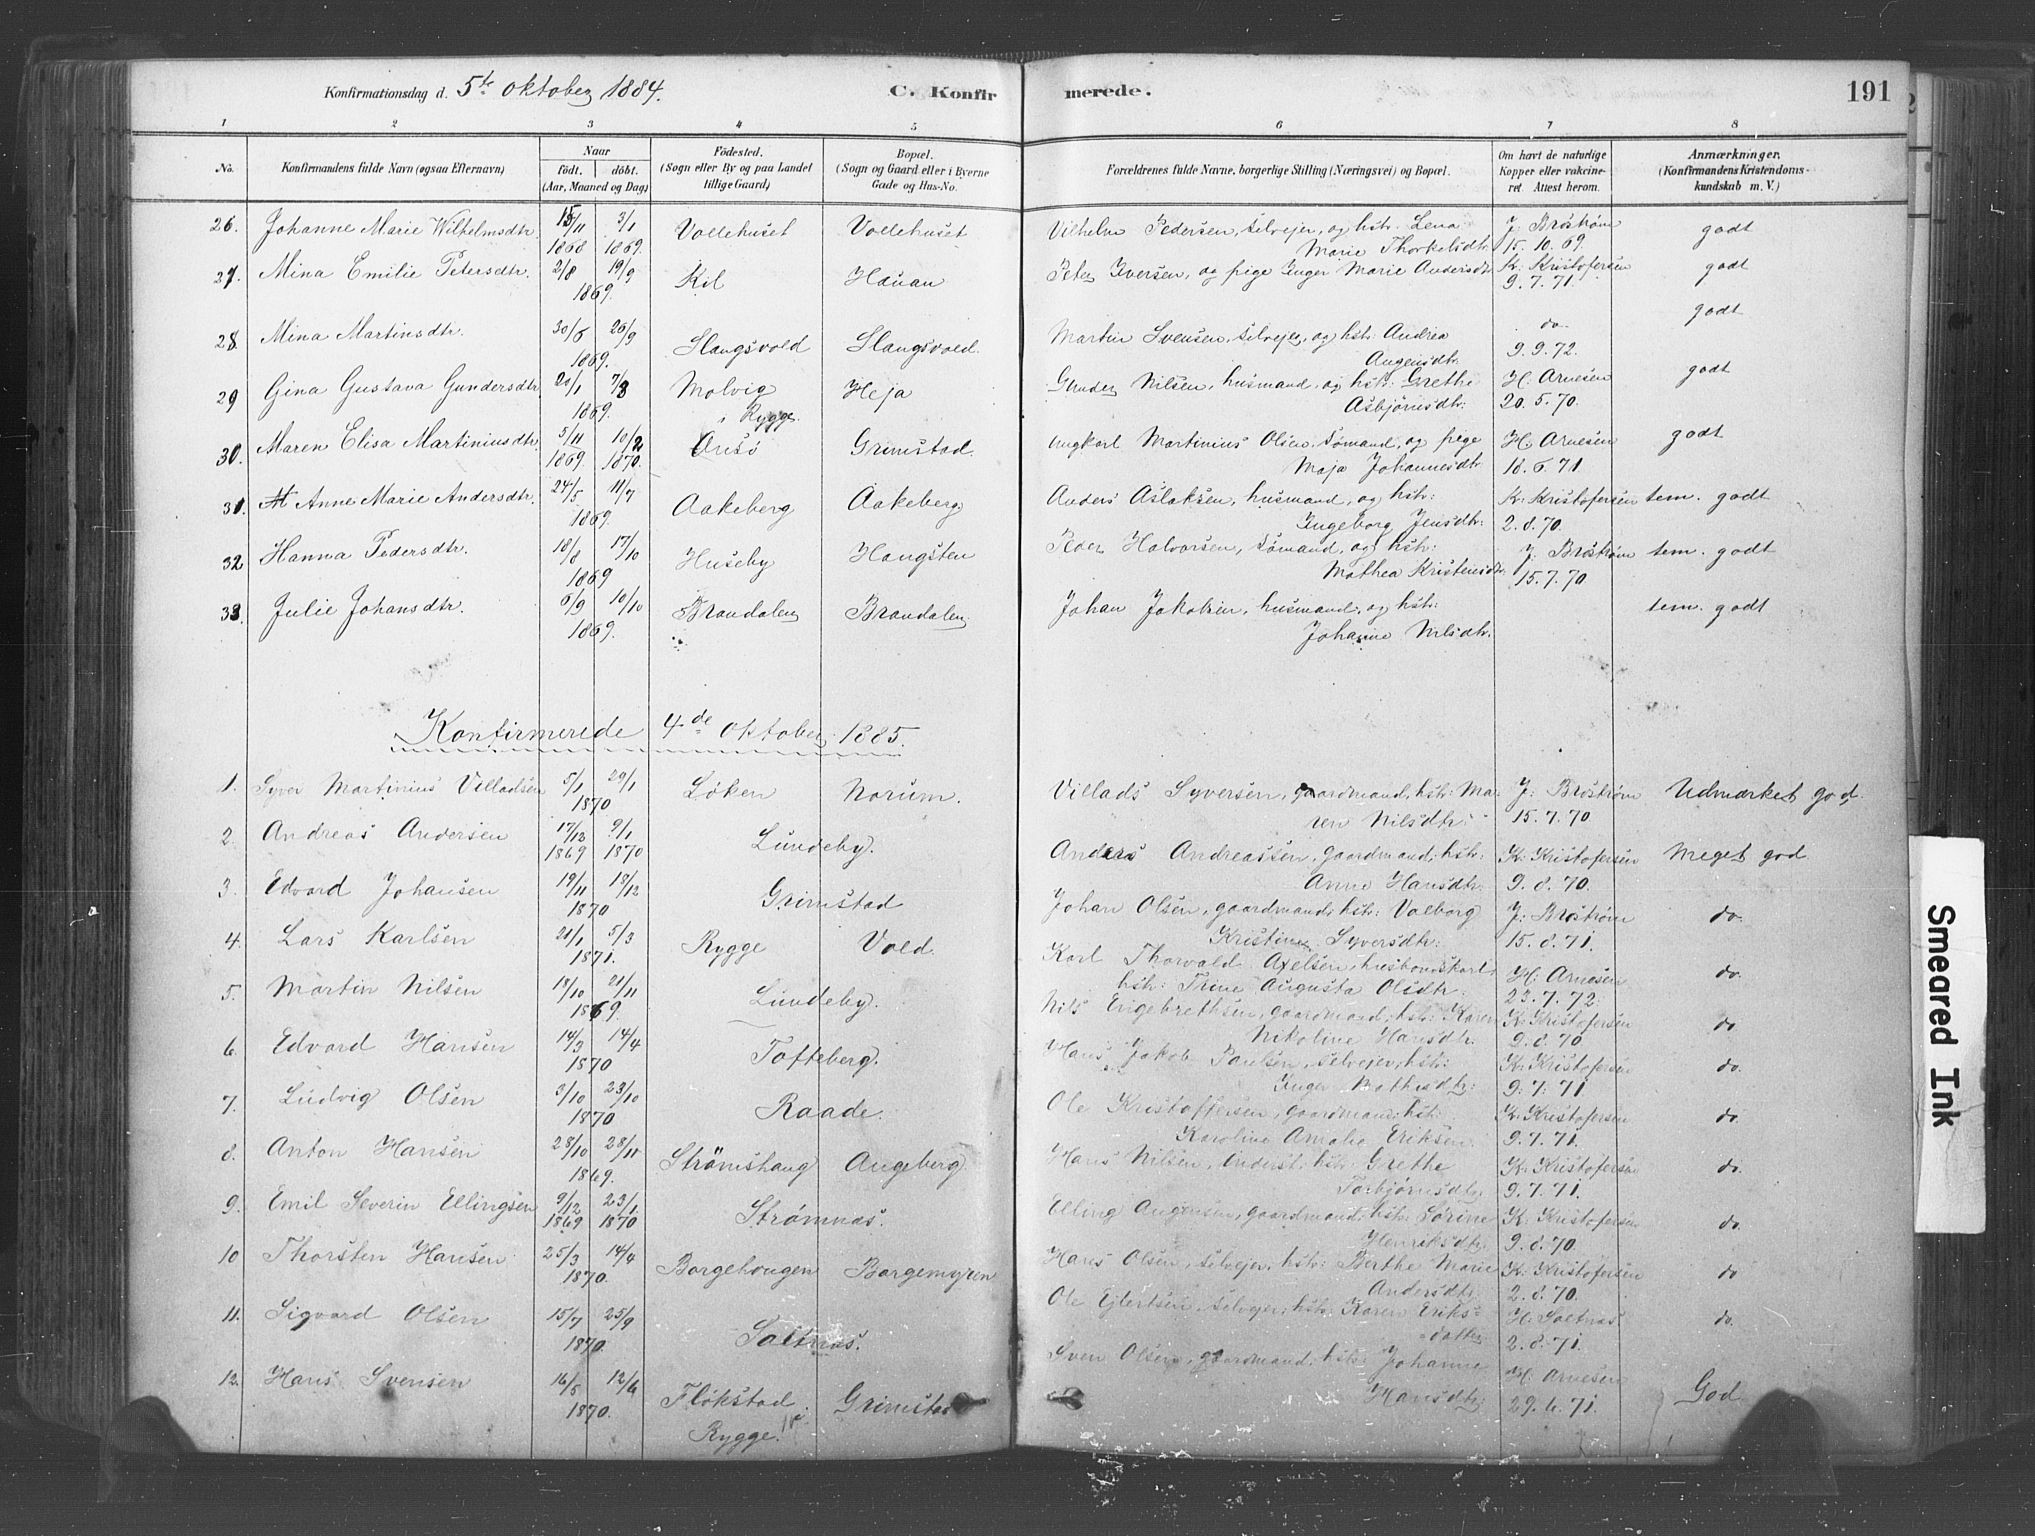 Konfirmationsdag d. 5te oktober 1884. C. Konfirmerede. 191
1 2 3 4 5 6 7 8
No. Konfirmandens fulde Navn (ogsaa Efternavn) Naar født. døbt. (Aar, Maaned og Dag) Fødested. (Sogn eller By og paa Landet tillige Gaard) Bopæl. (Sogn og Gaard eller i Byerne Gade og Hus-No. Forældrenes fulde Navne, borgerlige Stilling (Næringsvei) og Bopæl. Om havt de naturlige Kopper eller vakcineret. Attest herom. Anmærkninger. (Konfirmandens Kristendomskundskab m. V.)
26. Johanne Marie Wilhelmsdtr. 15/11 1868 3/1 1869. Vollehuset Vollehuset Vilhelm Pedersen, selvejer, og hstr. Lena Marie Thorkelsdtr. J. Brøstrøm 15.10.69. godt
27. Mina Emilie Petersdtr. 2/8 19/9 1869. Kil Hauan Peter Iversen, og pige Inger Marie Andersdtr. K. Kristofersen 9.7.71. godt
28. Mina Martinsdtr. 30/6 26/9 1869. Slangsvold Slangsvold. Martin Svensen, selvejer, og hstr: Andrea Augensdtr. do. 9.9.72. godt
29 Gina Gustava Gundersdtr. 20/1 7/3 1869. Molvig i Rygge. Heja Gunder Nilsen, husmand, og hstr: Grethe Asbjørnsdtr: H. Arnesen 20.5.70. godt
30. Maren Elisa Martiniusdtr. 5/11 1869 10/2 1870. Ørisø Grimstad. Ungkarl Martinius Olsen, sømand, og pige Maja Johannesdtr. H. Arnesen 18.6.71 godt
31. Anne Marie Andersdtr. 24/5 11/7 1869. Aakeberg Aakeberg. Anders Aslaksen, husmand, og hstr: Ingeborg Jensdtr: K. Kristofersen 2.8.70. tem. godt
32 Hanna Pedersdtr. 18/8 17/10 1869 Huseby Haugsten Peder Halvorsen, sømand, og hstr: Mathea Kristensdtr. J. Brøstrøm 15.7.70 tem. godt
33. Julie Johansdtr. 6/9 10/10 1869. Brandalen Brandalen Johan Jakobsen, husmand, og hstr: Johanne Nilsdtr. tem. godt
Konfirmerede 4de oktober 1885.
1. Syver Martinius Villadsen 5/1 29/1 1870 Løken Norum. Villads Syversen, gaardmand, hstr: Maren Nilsdtr: J. Brøstrøm 15.7.70. Udmærket god.
2. Andreas Andersen 17/12 1869 9/1 1870 Lundeby. Anders Andreassen, gaardmand; hstr: Anne Hansdtr: K. Kristofersen 9.8.70. Meget god
3. Edvard Johansen 19/11 18/12 1870 Grimstad Johan Olsen, gaardmand; hstr: Valborg Kristine Syversdtr: J. Brøstrøm 15.8.71. do.
4. Lars Karlsen 21/1 5/3 1871. Rygge Vold. Karl Thorvald Axelsen, husbondskarl, hstr: Trine Augusta Olsdtr. H. Arnesen 23.7.72. do.
5. Martin Nilsen 18/10 21/11 1869. Lundeby. Nils Engebrethsen, gaardmand; hstr: Karen Nikoline Hansdtr. K. Kristofersen 9.8.70 do.
6. Edvard Hansen 14/3 14/4 1870 Tofteberg. Hans Jakob Paulsen, selvejer, hstr: Inger Mathisdtr: K. Kristofersen 9.7.71 do.
7. Ludvig Olsen 3/10 23/10 1870 Raade. Ole Kristoffersen, gaardmand; hstr: Karoline Amalie Eriksen. K. Kristofersen 9.7.71. do.
8. Anton Hansen 28/10 28/11 1869. Strømshaug Augeberg. Hans Nilsen, inderst; hstr: Grethe Torbjørnsdtr. K. Kristofersen 9.7.71. do.
9. Emil Severin Ellingsen 9/12 1869 23/1 1870 Strømnæs. Elling Augensen, gaardmand; hstr: Sørine Henriksdtr. K. Kristofersen 9.8.70. do.
10 Thorsten Hansen 25/3 14/4 1870. Borgehougen Borgemyren Hans Olsen, selvejer, hstr: Berthe Marie Andersdtr: K. Kristofersen 2.8.70. do
11. Sigvard Olsen 15/7 25/9 1870 Saltnæs. Ole Ejlertsen, selvejer; hstr: Karen Eriksdatter H. Saltnæs 2.8.71. do.
12. Hans Svensen 16/5 12/6 1870. Fløkstad Rygge. Grimstad Sven Olsen, gaardmand; hstr: Johanne Hansdtr: H. Arnesen 29.6.71. God
Smeared Ink